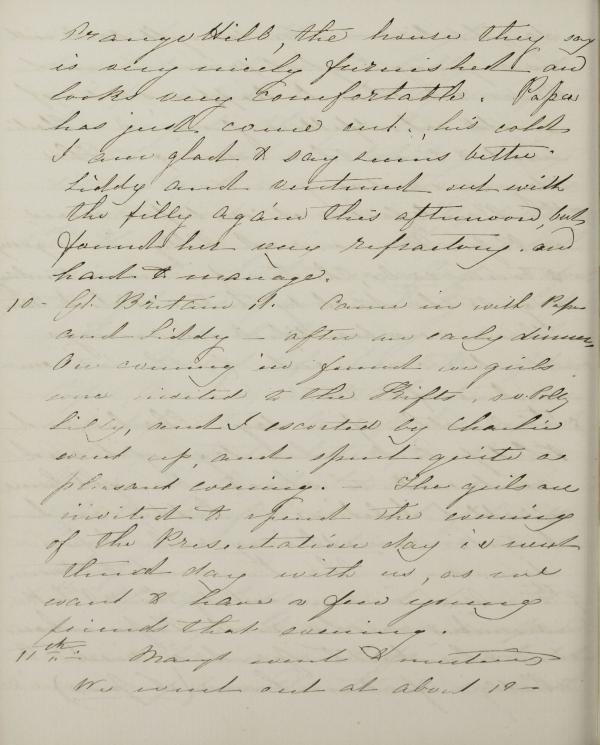 Orange Hill, the house they say
is very nicely furnished and
looks very comfortable. Papa
has just come out, his cold
I am glad to say seems better.
Liddy and ventured out with
the filly again this afternoon, but
found her very refractory. and
hard to manage.
10 - Gt. Britain St. Came in with Papa
and Liddy - after an early dinner,
On coming in found we girls
were invited to the Shifts, so Polly
Lilly, and I escorted by Charlie
went up, and spent quite a
pleasant evening. - The girls are
invited to spend the evening
of the Presentation day is next
third day with us, as we
want to have a few young
friends that evening.
11th went to meeting
We went out at about 12 -